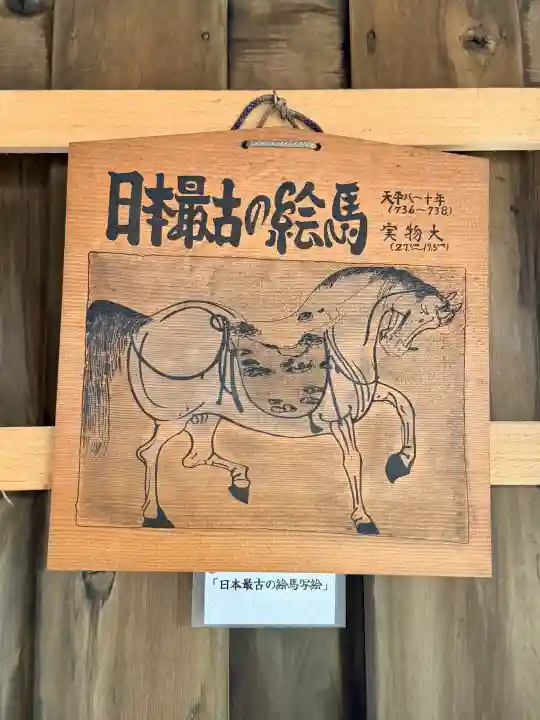 日本最古の絵馬
天平八〜十年
(736〜738)
実物大
(27.5cm〜19.5cm)
「日本最古の絵馬写絵」